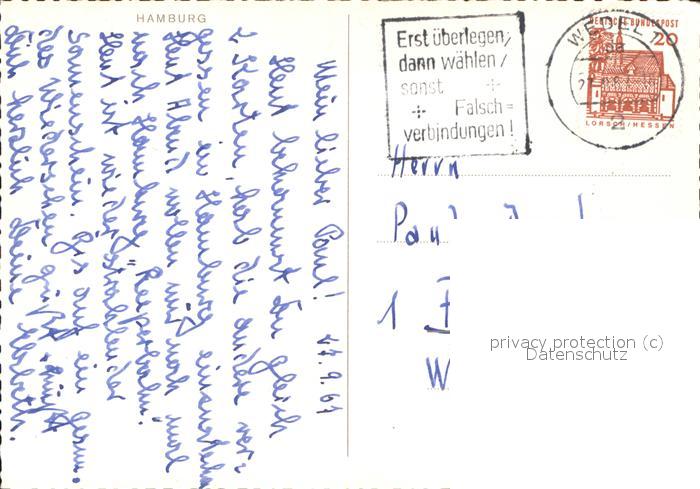 HAMBURG
Mein lieber Paul! 27.9.67
Heut bekommst du gleich
2 Karten, hab die andere ver-
gessen in Hamburg einzustecken
Heut Abend wollen wir noch mal
nach Hamburg "Reeperbahn".
Heut ist wieder strahlender
Sonnenschein. Bis auf ein gesun-
des Wiedersehen grüßt + küßt
dich herzlich Deine Elsbeth.
Erst überlegen,
dann wählen/
sonst
Falsch=
verbindungen!
WEDEL
2
DEUTSCHE BUNDESPOST
20
LORSCH/HESSEN
Herrn
Paul
1
W
privacy protection (c)
Datenschutz